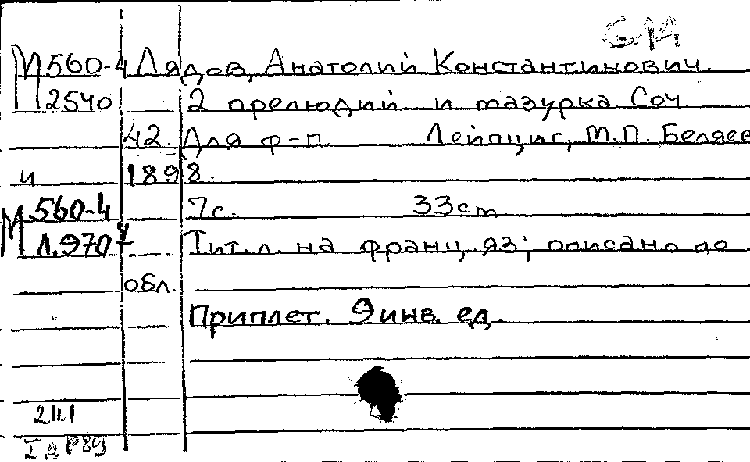 М 560-4 Лядов, Анатолий Константинович.
2540 2 прелюдии и мазурка Соч
42. Для ф-п. Лейпциг, М.П. Беляев
и 1898.
М 560-4 7с. 33см
Л.970 Тит.л. на франц. яз; описано по
обл.
Приплет. 9 инв. ед.